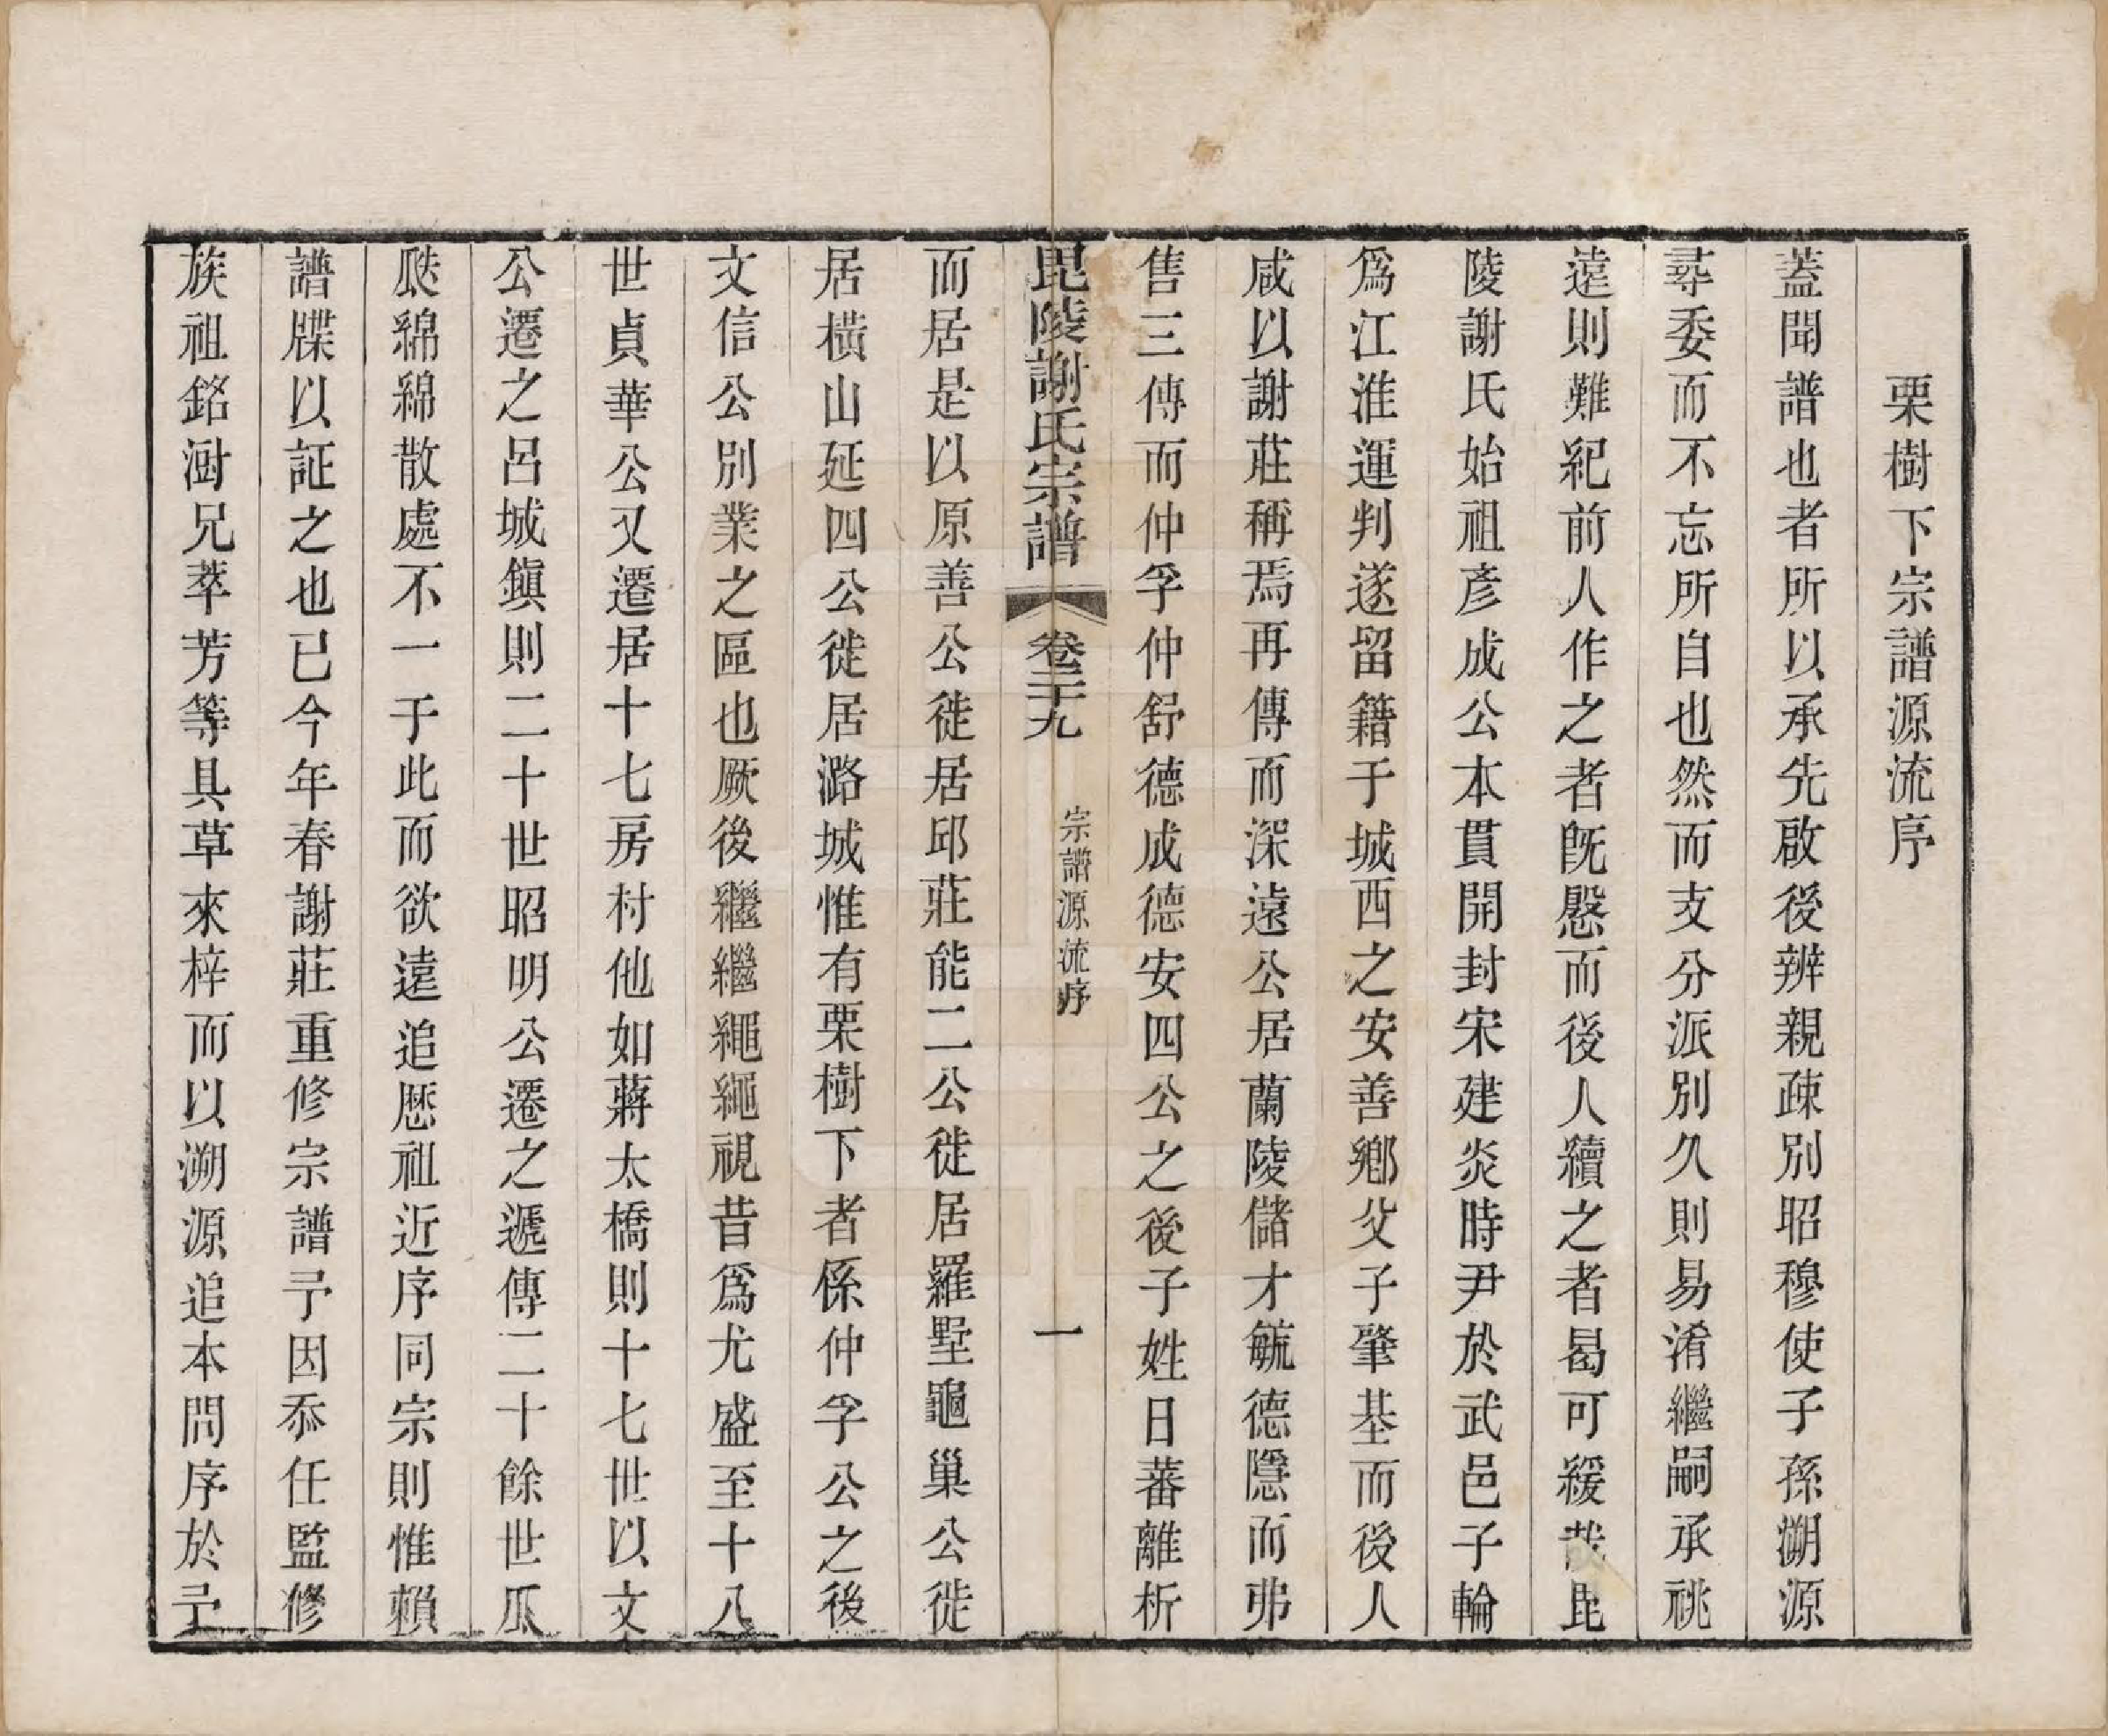 栗樹下宗譜源流序
蓋聞譜也者所以承先啟後辨親疎別昭穆使子孫溯源
尋委而不忘所自也然而支分派別久則易淆繼嗣承祧
遠則難紀前人作之者既慇而後人續之者曷可緩哉毘
陵謝氏始祖彥成公本貫開封宋建炎時尹於武邑子輪
爲江淮運判遂留籍于城西之安善鄉父子肇基而後人
咸以謝莊稱焉再傳而深遠公居蘭陵儲才毓德隱而弗
售三傳而仲孚仲舒德成德安四公之後子姓日蕃離析
毘陵謝氏宗譜 卷三十九 宗譜源流序 一
而居是以原善公徙居邱莊能二公徙居羅墅龜巢公徙
居橫山延四公徙居潞城惟有栗樹下者係仲孚公之後
文信公別業之區也厥後繼繼繩繩視昔爲尤盛至十八
世貞華公又遷居十七房村他如蔣太橋則十七世以文
公遷之呂城鎭則二十世昭明公遷之遞傳二十餘世瓜
瓞綿綿散處不一于此而欲遠追歷祖近序同宗則惟賴
譜牒以証之也已今年春謝莊重修宗譜予因忝任監修
族祖銘澍兄萃芳等具草來梓而以溯源追本問序於予